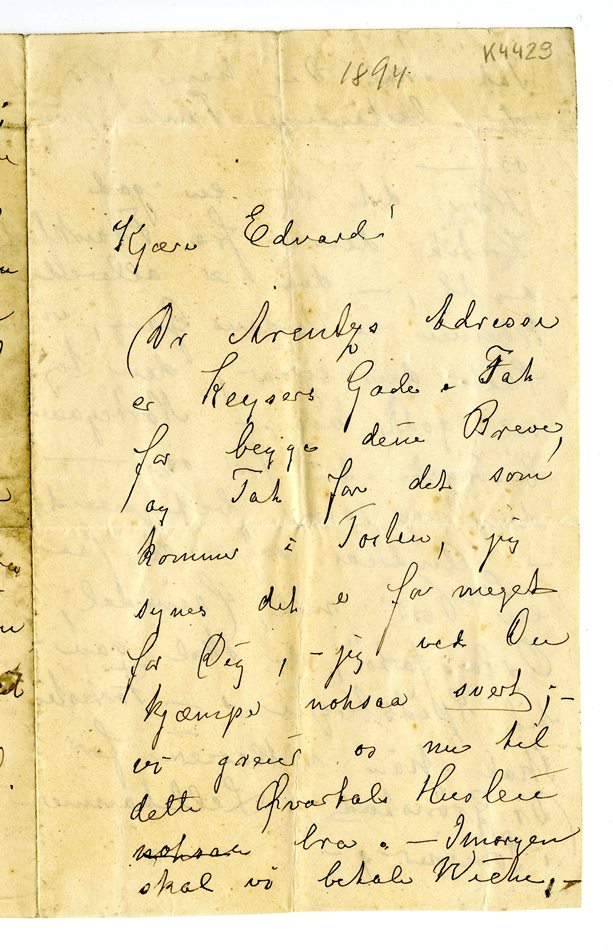 K4423
1894.
Kjære Edvard!
Dr Arentz's Adresse
er Keysers Gade. Tak
for begge dine Breve,
og Tak for det som
kommer i
jeg
synes det er for meget
for Dig, – jeg ved Du
kjæmper noksaa svert; –
vi greier os nu til
dette Qvartals Husleie
noksaa bra. – Imorgen
skal vi betale Wiehe, –